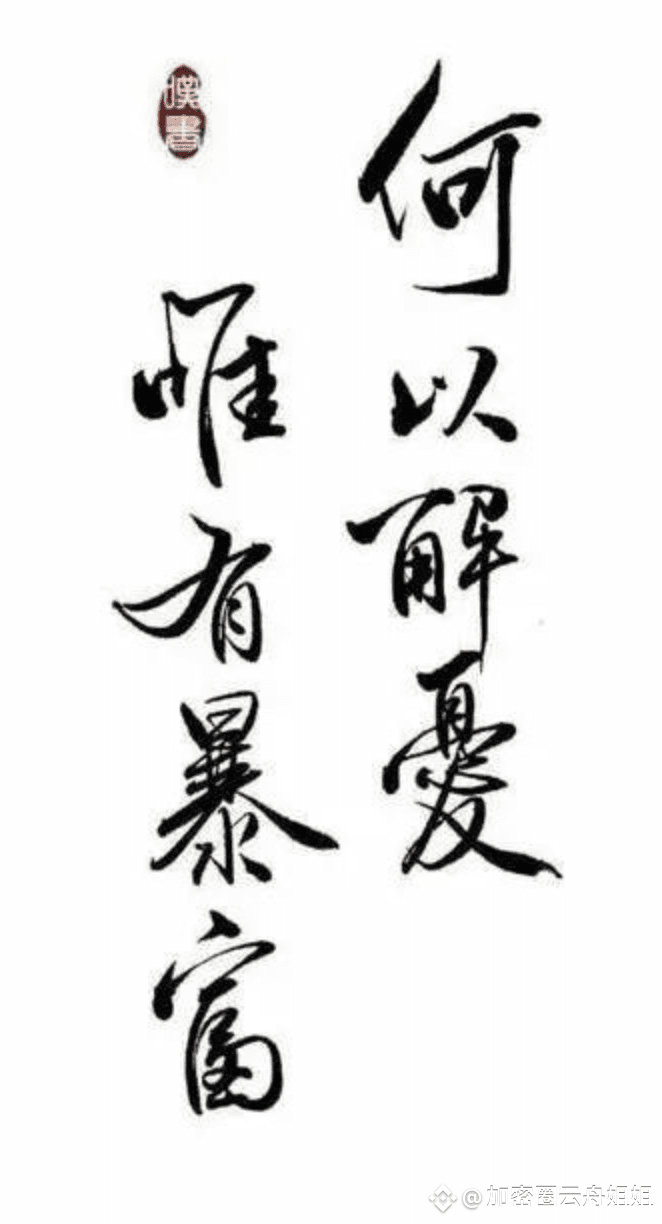 何以解憂
唯有暴富
@加密圈云舟姐姐